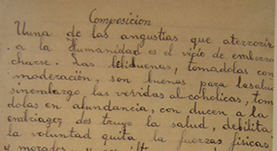 Composición
Una de las angustias que aterroriz
a la Humanidad es el vicio de emborra
charse. Las bebidas, tomadolas con
moderación, son buenas para la salud
sinembargo, las vevidas alcoholicas, tom
dolas en abundancia, con ducen a la
embriagez des truye la salud, debilita
la voluntad quita la fuerzas fisicas
y morales